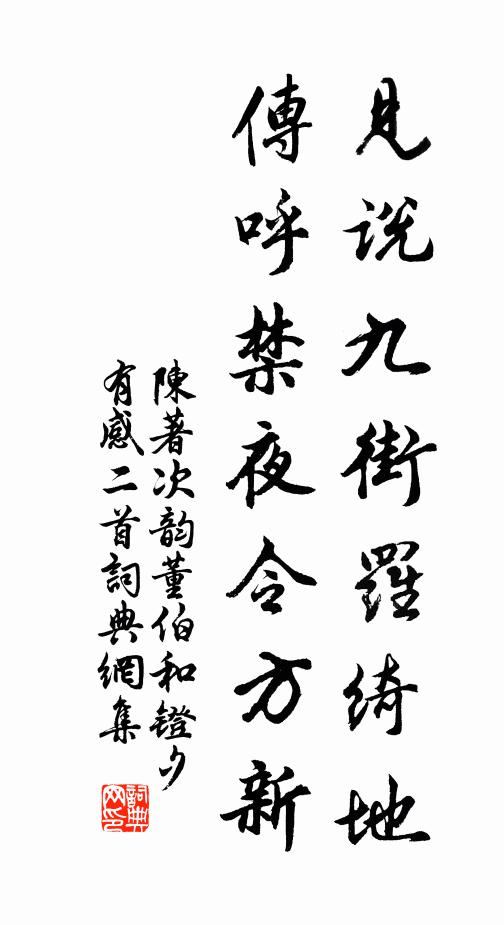 見說九街羅綺地
傳呼禁夜令方新
陳著次韵董伯和鐙夕
有感二首詞典網集
詞典网印